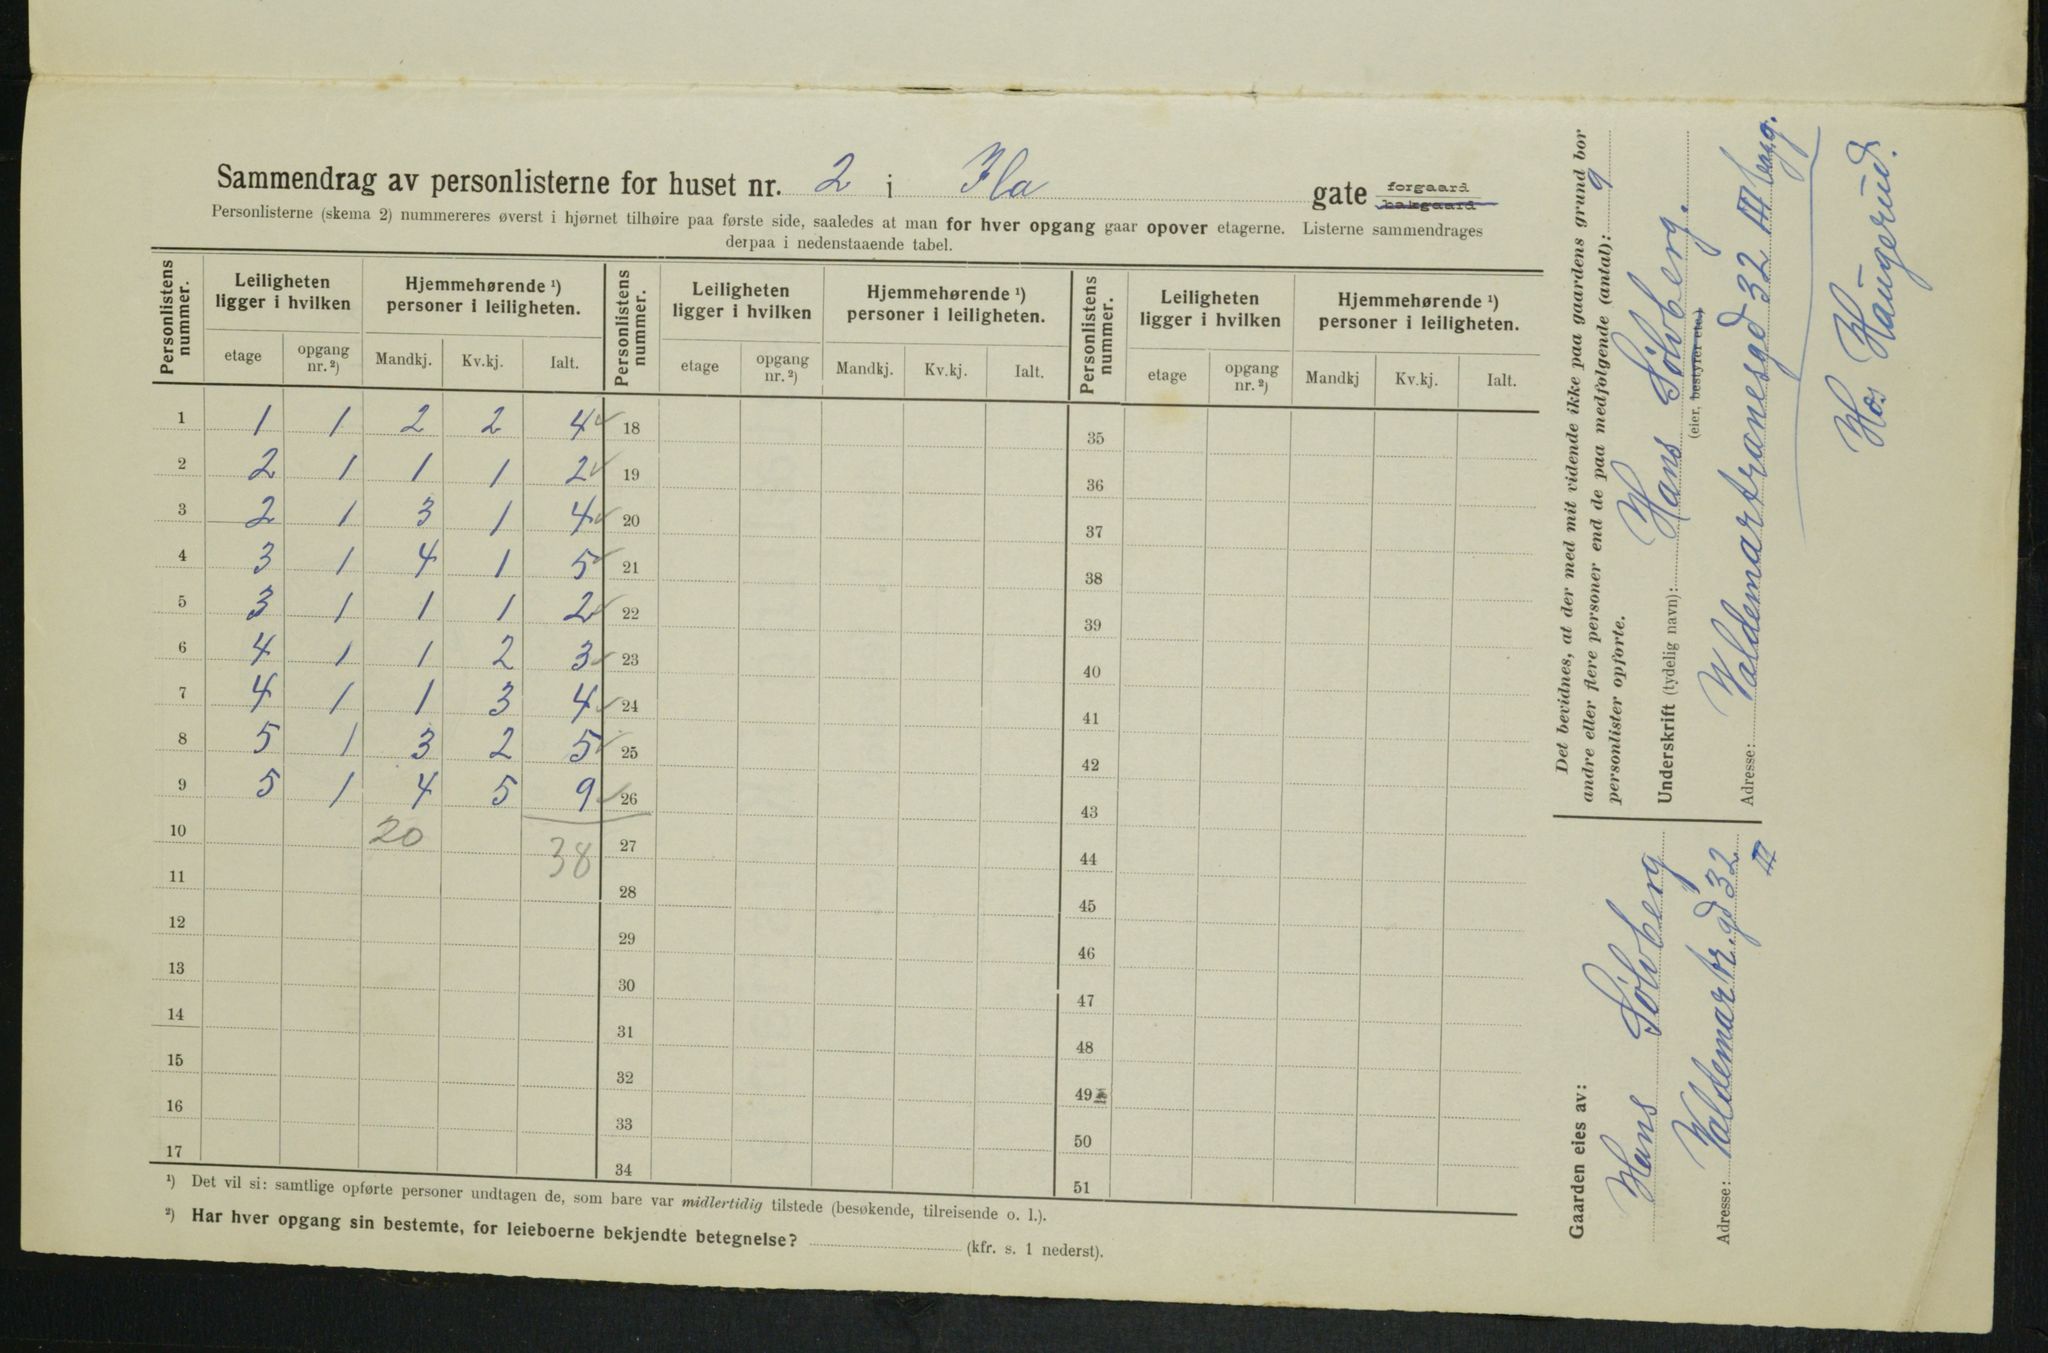 Sammendrag av personlisterne for huset nr. 2 i Ila gate forgaard ~~bakgaard~~
Personlisterne (skema 2) nummereres øverst i hjørnet tilhøire paa første side, saaledes at man for hver opgang gaar opover etagerne. Listerne sammendrages
derpaa i nedenstaaende tabel.
Personlistens nummer. | Leiligheten ligger i hvilken | Hjemmehørende ¹) personer i leiligheten. | Personlistens nummer. | Leiligheten ligger i hvilken | Hjemmehørende ¹) personer i leiligheten. | Personlistens nummer. | Leiligheten ligger i hvilken | Hjemmehørende ¹) personer i leiligheten.
etage | opgang nr. ²) | Mandkj. | Kv.kj. | Ialt. | etage | opgang nr. ²) | Mandkj. | Kv.kj. | Ialt. | etage | opgang nr. ²) | Mandkj | Kv.kj. | Ialt.
1 | 1 | 1 | 2 | 2 | 4 ✓ | 18 | 35
2 | 2 | 1 | 1 | 1 | 2 ✓ | 19 | 36
3 | 2 | 1 | 3 | 1 | 4 ✓ | 20 | 37
4 | 3 | 1 | 4 | 1 | 5 ✓ | 21 | 38
5 | 3 | 1 | 1 | 1 | 2 ✓ | 22 | 39
6 | 4 | 1 | 1 | 2 | 3 ✓ | 23 | 40
7 | 4 | 1 | 1 | 3 | 4 ✓ | 24 | 41
8 | 5 | 1 | 3 | 2 | 5 ✓ | 25 | 42
9 | 5 | 1 | 4 | 5 | 9 ✓ | 26 | 43
10 | 20 | 38 | 27 | 44
11 | 28 | 45
12 | 29 | 46
13 | 30 | 47
14 | 31 | 48
15 | 32 | 49
16 | 33 | 50
17 | 34 | 51
¹) Det vil si: samtlige opførte personer undtagen de, som bare var midlertidig tilstede (besøkende, tilreisende o. l.).
²) Har hver opgang sin bestemte, for leieboerne bekjendte betegnelse? (kfr. s. 1 nederst).
Det bevidnes, at der med mit vidende ikke paa gaardens grund bor
andre eller flere personer end de paa medfølgende (antal): 9
personlister opførte.
Underskrift (tydelig navn): Hans Sölvberg.
(eier, ~~bestyrer etc.~~)
Adresse: Valdemar tranesgd 32 III
Hos Haugerud.
Gaarden eies av:
Hans Sölvberg
Adresse: Valdemar tr. gd 32
III